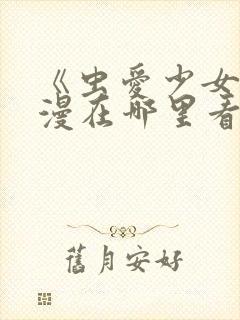 《虫爱少女
漫在哪里看
舊月安好